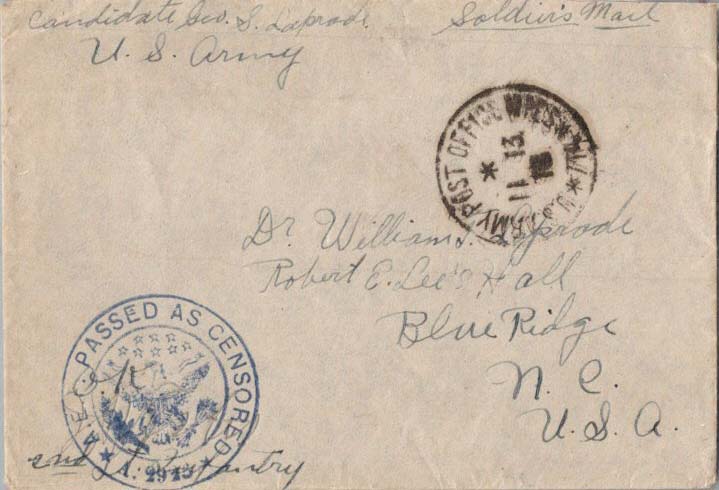 Candidate Geo. S. Laprade
U. S. Army
Soldier's Mail
U.S. ARMY POST OFFICE
13
11
Dr. William T. Laprade
Robert E. Lee's Hall
Blue Ridge
N. C.
U. S. A.
A.E.F. PASSED AS CENSORED
A. 2943
2nd Lt. Infantry